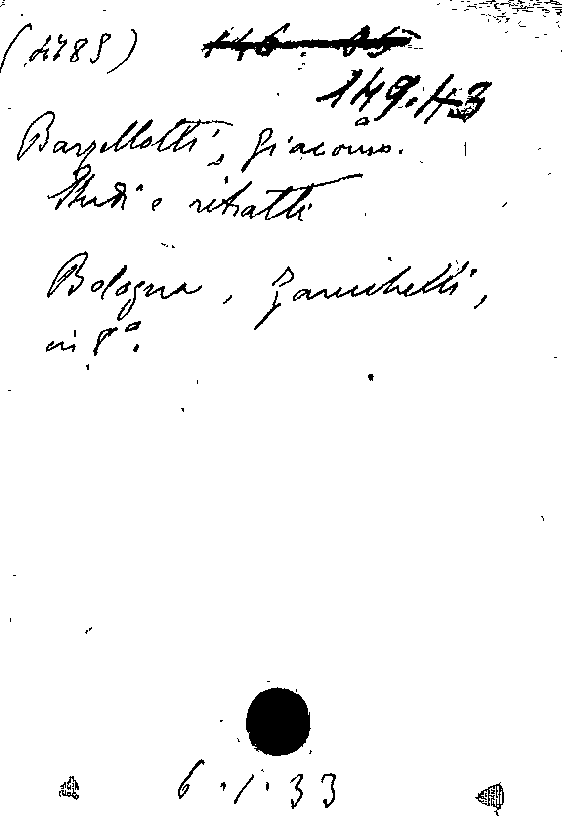 (2789)
149.43
Barzellotti, Giacomo.
Studi e ritratti
Bologna, Zanichelli,
in 8º.
6.1.33